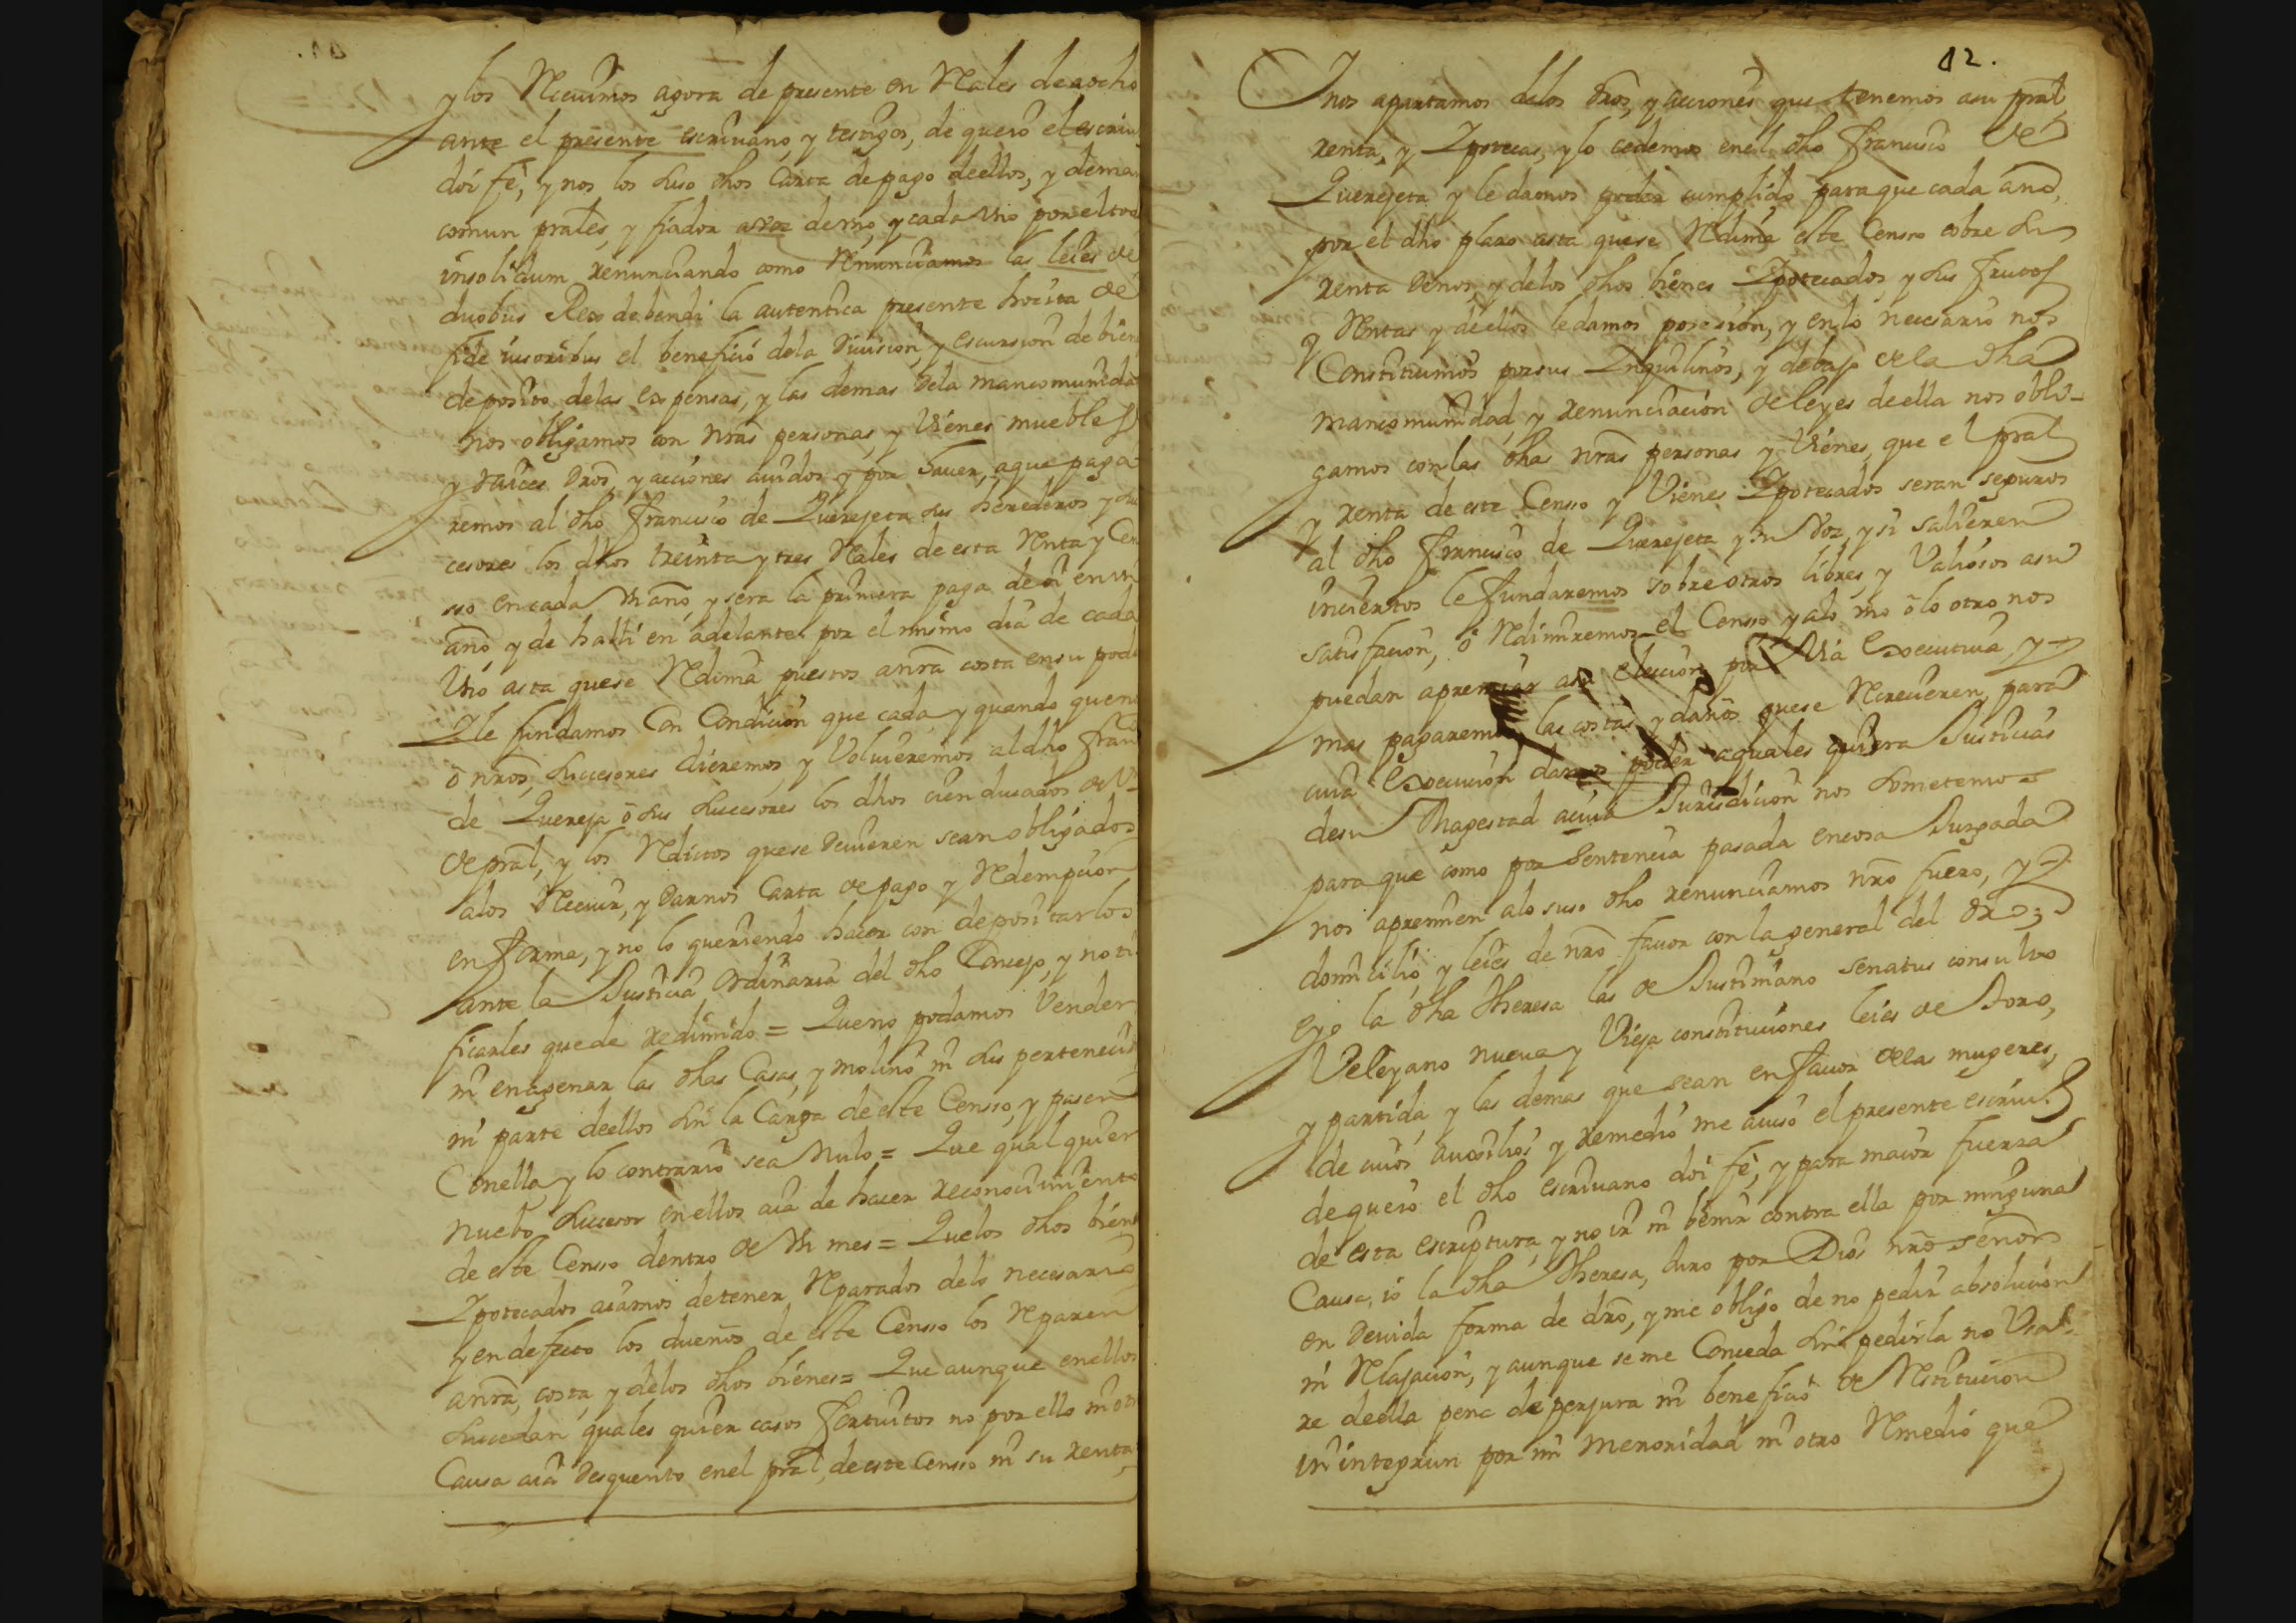 y los Recivimos agora de presente en Reales de a ocho
ante el presente escrivano, y testigos, de que io el escriv
doi fe, y nos los suso dhos Carta de pago de ellos, y deman
comun prales, y fiador a voz de mo, y cada uno por el tod
insolidum, renunciando como Renunciamos las leies de
duobus Rex debendi la autentica presente hocita de
fide iusoribus el beneficio dela Division, y escursion de bien
deposito delas expensas, y las demas dela mancomunida
nos obligamos con nras personas, y Vienes muebles
y raices dros, y acciones avidos y por haver, a que paga
remos al dho Francisco de Querejeta sus herederos y su
cesores los dhos treinta y tres Reales de esta Renta y Cen
sso en cada Vn año, y sera la primera paga de oi en un
año y de halli en adelante por el mismo dia de cada
Vno asta que se Redima puestos a nra costa en su pod
Y le fundamos Con Condicion que cada y quando que no
o nros, sucesores dieremos, y Volvieremos al dho Fran
de Quereja o sus sucesores los dhos cien ducados de V
de pral, y los Reditos que se devieren sean obligados
a los Recivir, y darnos Carta de pago y Redempcion
en forma, y no lo queriendo hacer con depositarlos
ante la Justicia Ordinaria del dho Concejo, y noti
ficarles quede redimido = Que no podamos Vender
ni enagenar las dhas Casas, y molino ni sus pertenecid
ni parte de ellos sin la Carga de este Censso, y pasen
Con ella y lo contrario sea Nulo = Que qual quier
nuebo sucesor en ellos aia de hacer reconocimiento
de este Censso dentro de Vn mes = Que los dhos bien
Ypotecados aiamos de tener Reparados delo necesario
y en defecto los dueños de este Censso los Reparen
a nra, costa, y delos dhos bienes = Que aunque en ellos
sucedan quales quier casos fortuitos no por ello ni ot
Causa aia desquento en el pral, de este Censso ni su renta
12.
Y nos apartamos delos dros, y acciones que tenemos a su pral
renta, y Ypotecas, y lo cedemos en el dho Francisco de
Querejeta y le damos poder cumplido para que cada año,
por el dho plazo asta que se Redima este Censso cobre su
renta de nos, y delos dhos bienes Ypotecados, y sus frutos
y Rentas y de ellos le damos posesion, y en lo necesario nos
Constituimos por sus Ynquilinos, y debajo de la dha
mancomunidad, y renunciacion de leyes de ella nos obli-
gamos con las dhas nras personas y Vienes, que el pral
y renta de este Censso y Vienes Ypotecados seran seguros
al dho Francisco de Querejeta y su Voz, y si salieren
inciertos le fundaremos sobre otros libres y Valiosos a su
satisfacion, o Redimiremos el Censso y a lo uno o lo otro nos
puedan apremiar a su eleccion por Via Executiva, y
mas pagaremos las costas y daños que se Recrevieren para
cuia Execucion damos poder a quales quiera Justicias
de su Magestad a cuia Jurisdicion nos sometemos
para que como por Sentencia pasada en cosa Juzgada
nos apremien a lo suso dho renunciamos nro fuero, y
domicilio, y leies de nro favor con la general del dro;
e yo la dha Theresa las de Justiniano senatus consulto
Veleyano nueva y Vieja constituciones leies de Toro,
y partida y las demas que sean en favor delas mugeres,
de cuios auxilios y remedio me aviso el presente escriv.
de que io el dho escrivano doi fe, y para maior fuerza
de esta escriptura, y no ir ni benir contra ella por ninguna
Causa, io la dha Theresa, Juro por Dios nro señor
en devida forma de dro, y me obligo de no pedir absolucion
ni Relajacion, y aunque se me Conceda sin pedirla no Usa-
re de ella pena de perjura ni beneficio de Restitucion
in integrun por mi menoridad ni otro Remedio que